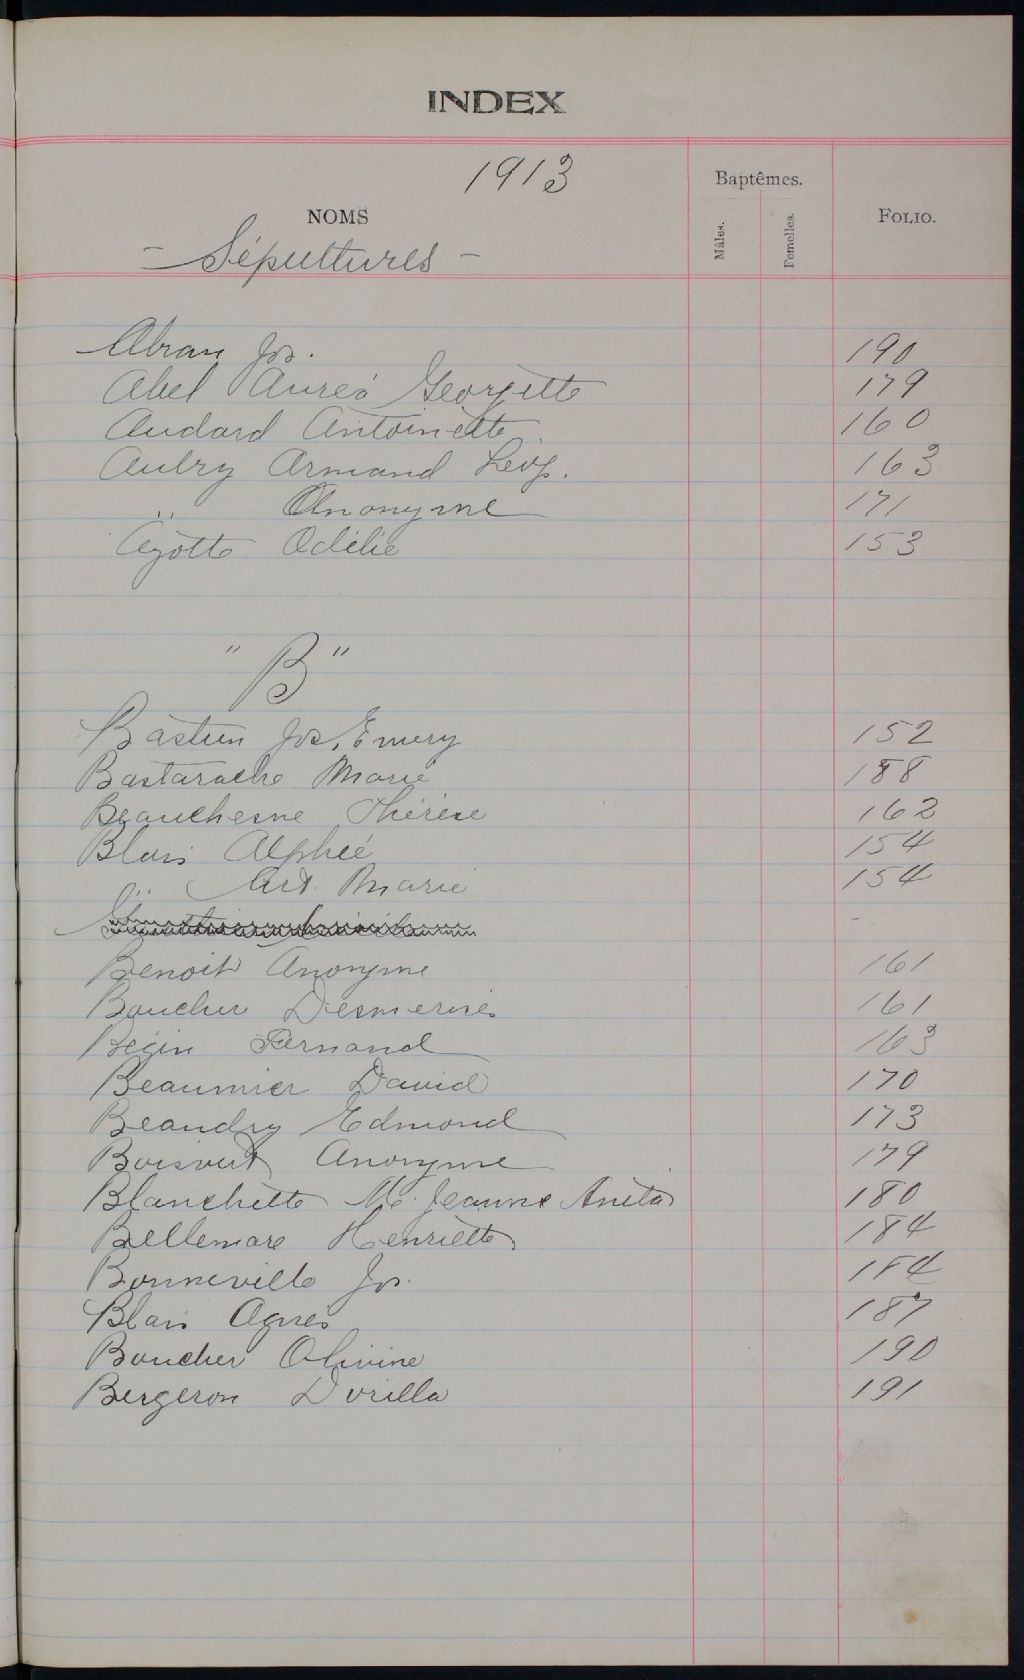 INDEX
1913
Baptêmes.
NOMS
Mâles.
Femelles.
FOLIO.
- Sépultures -
Abran Jos. 190
Abel Auréa Georgette 179
Audard Antoinette 160
Aubry Armand Léop. 163
" Anonyme 171
Ayotte Odélie 153
"B"
Bastien Jos. Emery 152
Bastarache Marie 188
Beauchesne Thérèse 162
Blais Alphée 154
" Art. Marie 154
Benoit Anonyme 161
Boucher 161
Bégin Fernand 163
Beaumier David 170
Beaudry Edmond 173
Boisvert Anonyme 179
Blanchette M. Jeanne Anita 180
Bellemare Henriette 184
Bonneville Jos. 184
Blais Agnes 187
Boucher Olivine 190
Bergeron Dorilla 191